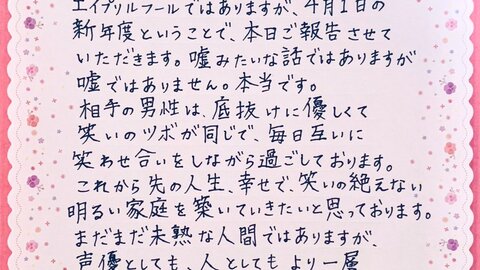 エイプリルフールではありますが、4月1日の
新年度ということで、本日ご報告させて
いただきます。嘘みたいな話ではありますが
嘘ではありません。本当です。
相手の男性は、底抜けに優しくて
笑いのツボが同じで、毎日互いに
笑わせ合いをしながら過ごしております。
これから先の人生、幸せで、笑いの絶えない
明るい家庭を築いていきたいと思っております。
まだまだ未熟な人間ではありますが、
声優としても、人としてもより一層